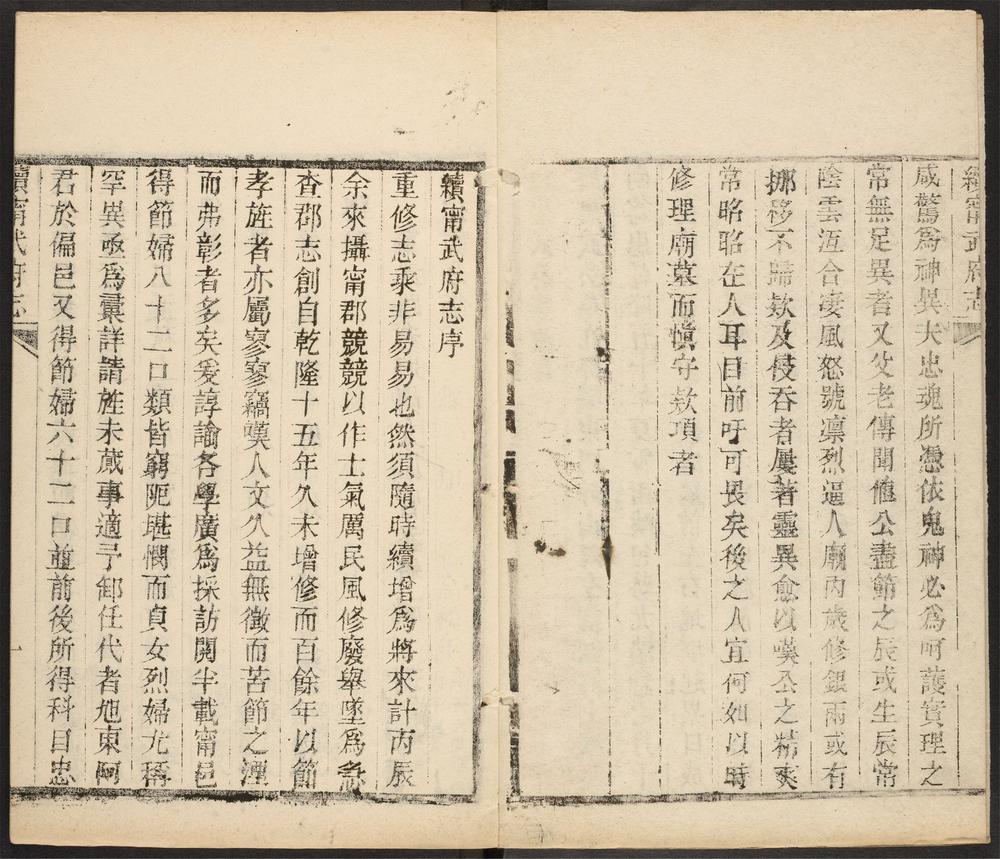 續甯武府志
咸驚爲神異夫忠魂所憑依鬼神必爲呵護實理之
常無足異者又父老傳聞值公盡節之辰或生辰常
陰雲沍合凄風怒號凛烈逼人廟内歲修銀兩或有
挪移不歸欵及侵吞者屢著靈異愈以嘆公之精爽
常昭昭在人耳目前吁可畏矣後之人宜何如以時
修理廟墓而慎守欵項者
續甯武府志序
重修志乘非易易也然須隨時續增爲將來計丙辰
余來攝甯郡競競以作士氣厲民風修廢舉墜爲急
查郡志創自乾隆十五年久未增修而百餘年以節
孝旌者亦屬寥寥竊嘆人文久益無徵而苦節之湮
而弗彰者多矣爰諄諭各學廣爲採訪閱半載甯邑
得節婦八十二口類皆窮阨堪憫而貞女烈婦尤稱
罕異亟爲彚詳請旌未蕆事適予卸任代者旭東阿
君於偏邑又得節婦六十二口並前後所得科目忠
續甯武府志
一